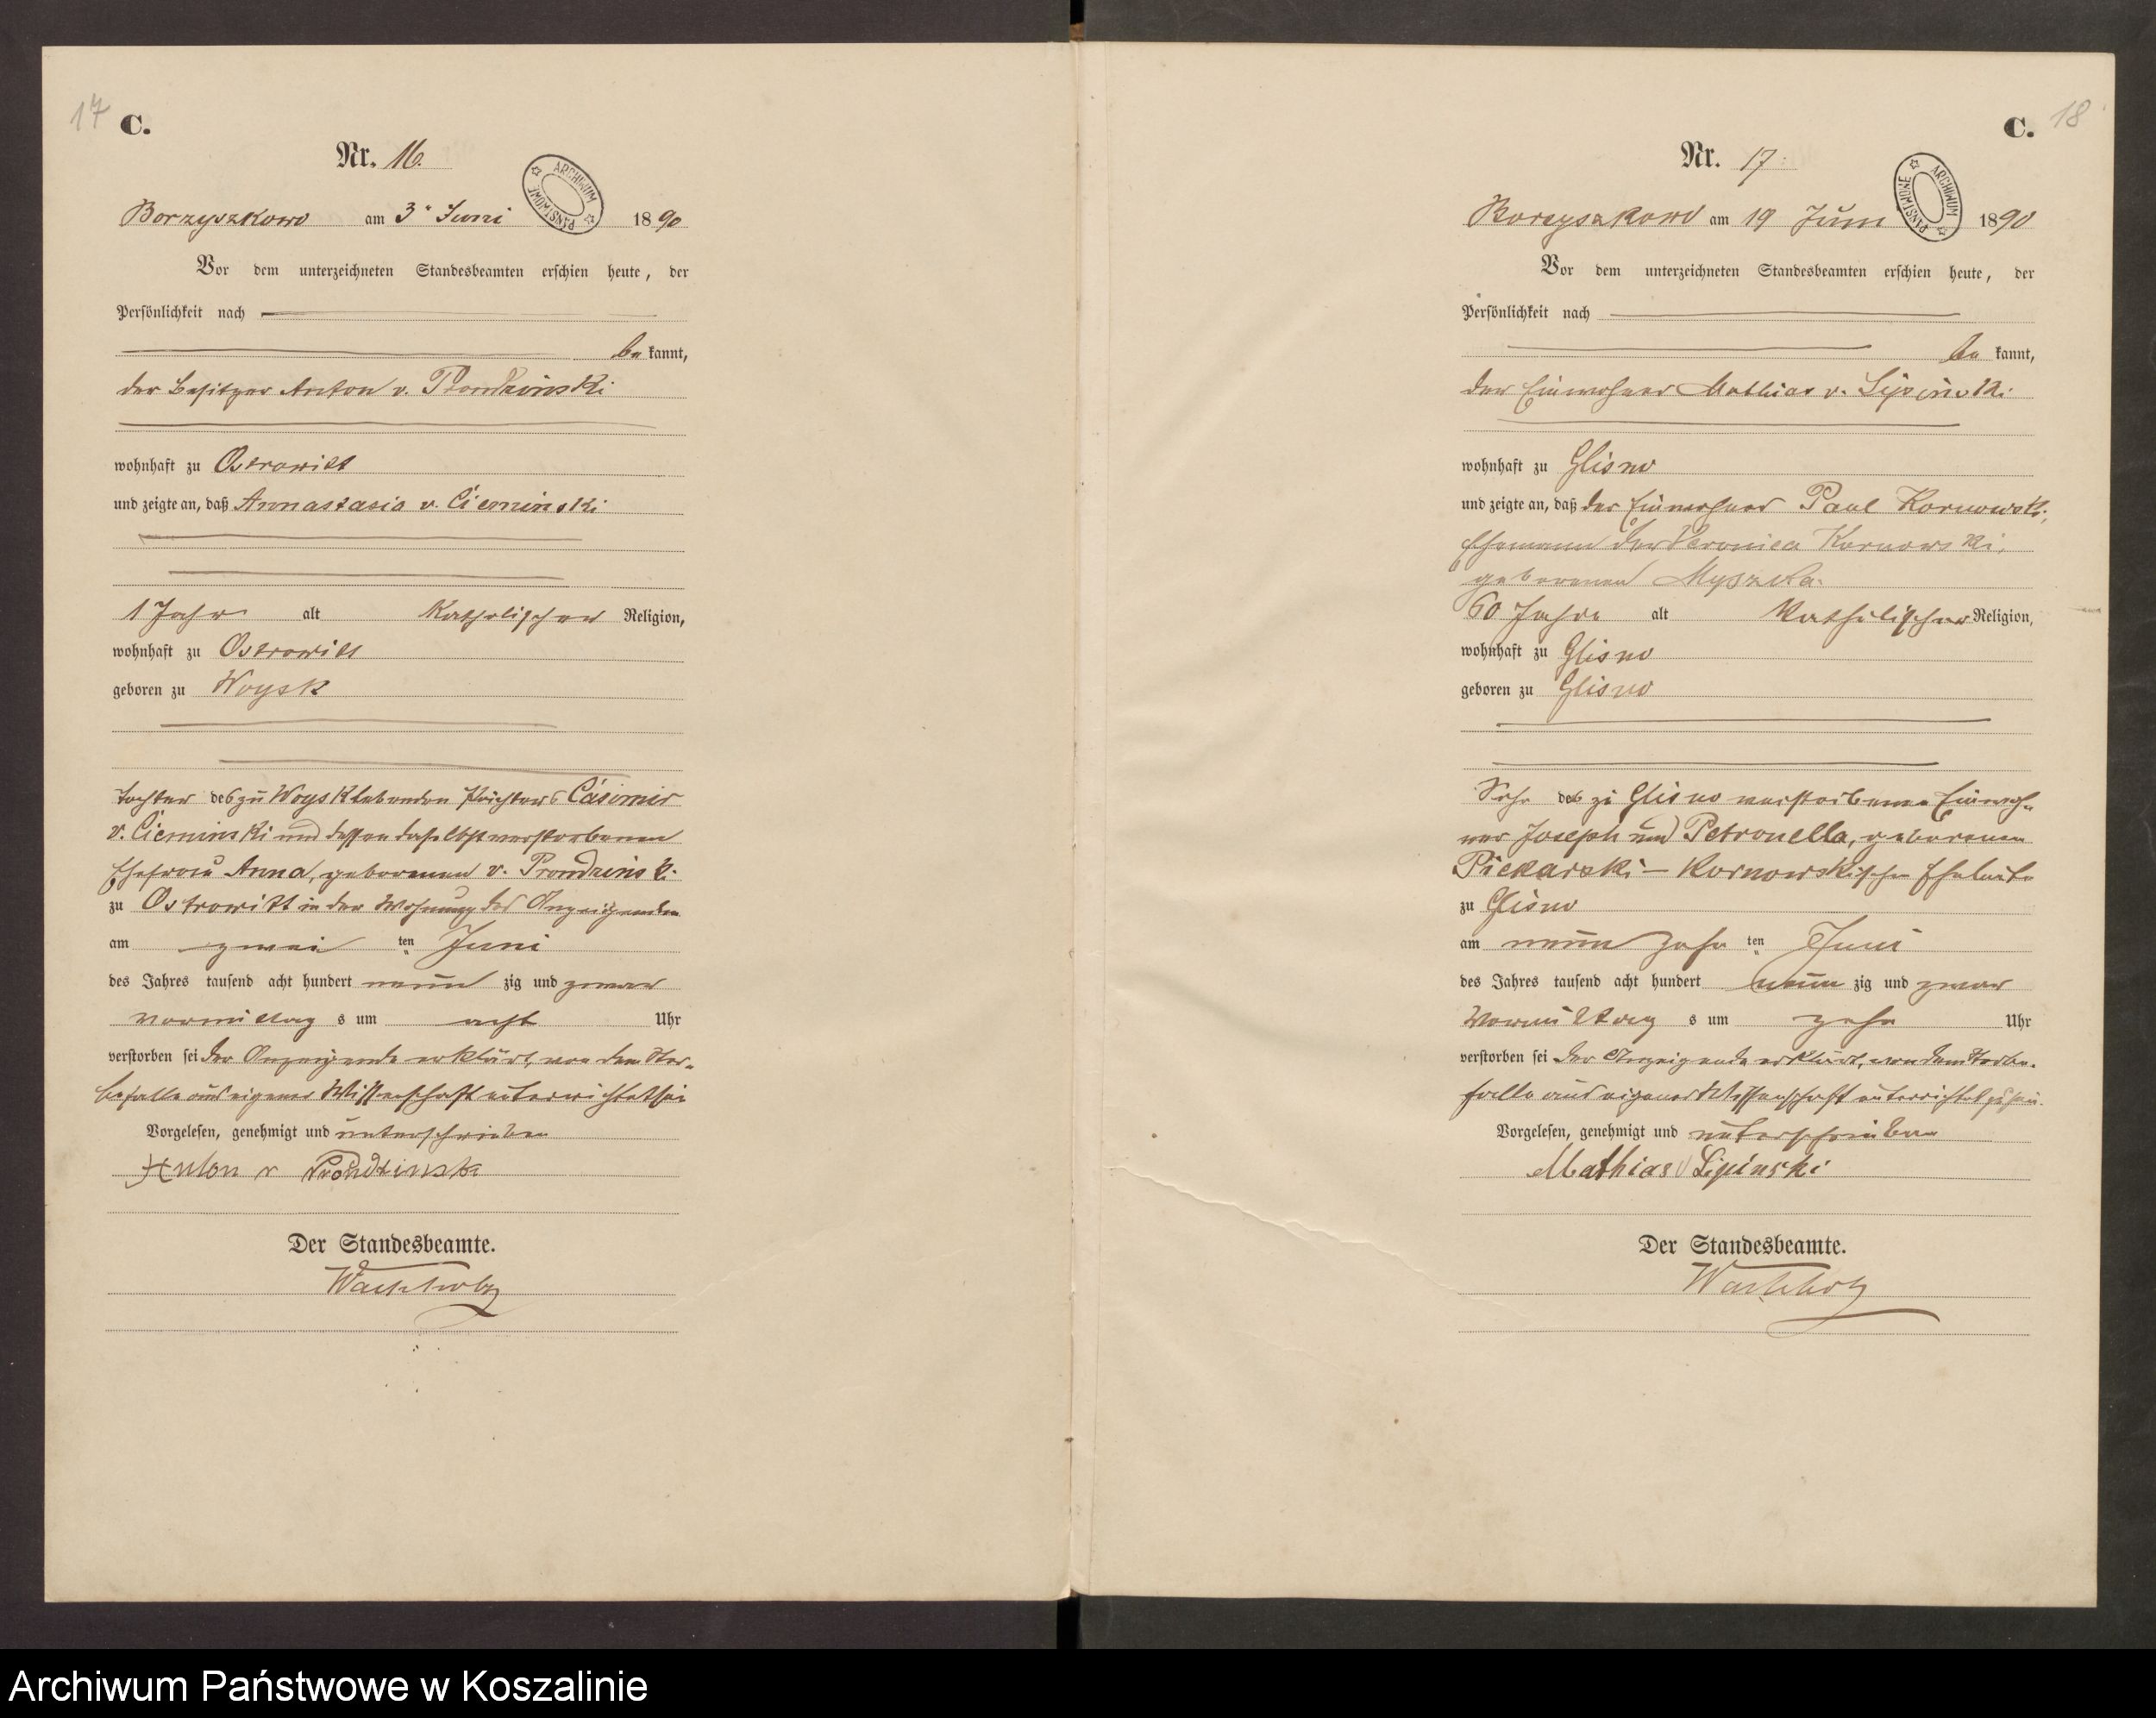 17
C.
Nr. 16.
ARCHIWUM PAŃSTWOWE
Borzyszkowo am 3. Juni 1890
Vor dem unterzeichneten Standesbeamten erschien heute, der
Persönlichkeit nach
be kannt,
der Besitzer Anton v. Prondzinski
wohnhaft zu Ostrowitt
und zeigte an, daß Annastasia v. Cieminski
1 Jahr alt Katholischer Religion,
wohnhaft zu Ostrowitt
geboren zu Woysk
Tochter des zu Woysk lebenden Pächters Casimir
v. Cieminski und dessen daselbst verstorbenen
Ehefrau Anna, geborenen v. Prondzinski
zu Ostrowitt in der Wohnung des Anzeigenden
am zwei ten Juni
des Jahres tausend acht hundert neun zig und zwar
Vormittag s um acht Uhr
verstorben sei der Anzeigende erklärt, von dem Ster-
befalle aus eigener Wissenschaft unterrichtet sei
Vorgelesen, genehmigt und unterschrieben
Anton v Prondzinski
Der Standesbeamte.
Wachholz
C.
18
Nr. 17.
ARCHIWUM PAŃSTWOWE
Borzyszkowo am 19 Juni 1890
Vor dem unterzeichneten Standesbeamten erschien heute, der
Persönlichkeit nach
be kannt,
der Einwohner Mathias v. Lipinski
wohnhaft zu Glisno
und zeigte an, daß der Einwohner Paul Kornowski,
Ehemann der Veronica Kornowski,
geborenen Myszka.
60 Jahre alt Katholischer Religion,
wohnhaft zu Glisno
geboren zu Glisno
Sohn des zu Glisno verstorbenen Einwoh-
ner Joseph und Petronella, geborenen
Piekarski – Kornowskischen Eheleute
zu Glisno
am neun zehn ten Juni
des Jahres tausend acht hundert neun zig und zwar
Vormittag s um zehn Uhr
verstorben sei der Anzeigende erklärt, von dem Sterbe-
falle aus eigener Wissenschaft unterrichtet zu sein.
Vorgelesen, genehmigt und unterschrieben
Mathias v Lipinski
Der Standesbeamte.
Wachholz
Archiwum Państwowe w Koszalinie